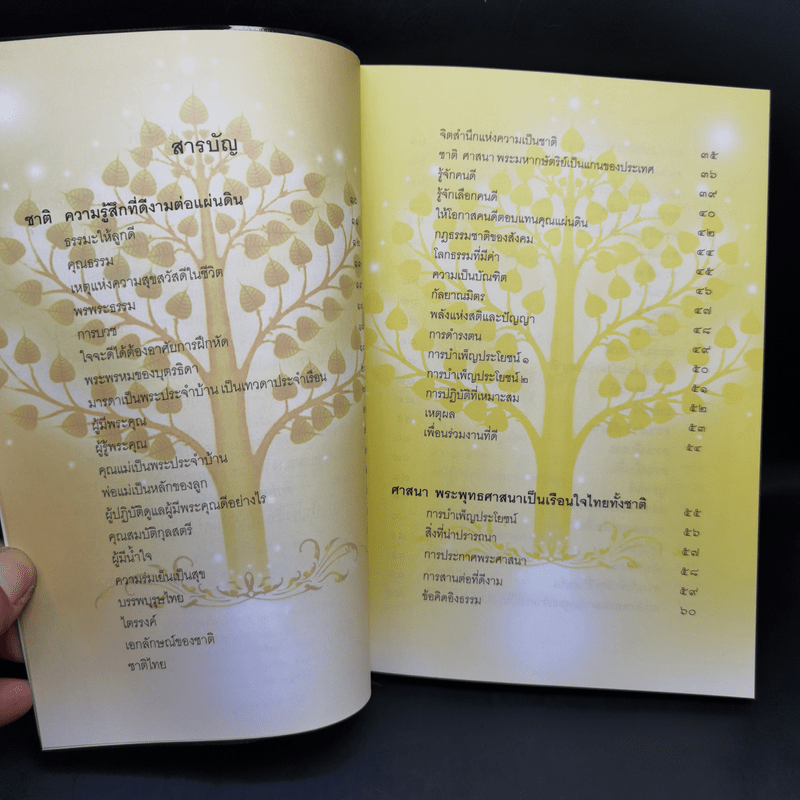 สารบัญ
ชาติ ความรู้สึกที่ดีงามต่อแผ่นดิน
ธรรมะให้ลูกดี
คุณธรรม
เหตุแห่งความสุขสวัสดีในชีวิต
พรพระธรรม
การบวช
ใจจะดีได้ต้องอาศัยการฝึกหัด
พระพรหมของบุตรธิดา
มารดาเป็นพระประจำบ้าน เป็นเทวดาประจำเรือน
ผู้มีพระคุณ
ผู้รู้พระคุณ
คุณแม่เป็นพระประจำบ้าน
พ่อแม่เป็นหลักของลูก
ผู้ปฏิบัติดูแลผู้มีพระคุณดีอย่างไร
คุณสมบัติกุลสตรี
ผู้มีน้ำใจ
ความร่มเย็นเป็นสุข
บรรพบุรุษไทย
ไตรรงค์
เอกลักษณ์ของชาติ
ชาติไทย
จิตสำนึกแห่งความเป็นชาติ ๓๕
ชาติ ศาสนา พระมหากษัตริย์เป็นแกนของประเทศ ๓๖
รู้จักคนดี ๓๙
รู้จักเลือกคนดี ๔๐
ให้โอกาสคนดีตอบแทนคุณแผ่นดิน ๔๒
กฎธรรมชาติของสังคม ๔๔
โลกธรรมที่มีค่า ๔๕
ความเป็นบัณฑิต ๔๖
กัลยาณมิตร ๔๗
พลังแห่งสติและปัญญา ๔๘
การดำรงตน ๔๙
การบำเพ็ญประโยชน์ ๑ ๕๐
การบำเพ็ญประโยชน์ ๒ ๕๑
การปฏิบัติที่เหมาะสม ๕๒
เหตุผล ๕๓
เพื่อนร่วมงานที่ดี ๕๔
ศาสนา พระพุทธศาสนาเป็นเรือนใจไทยทั้งชาติ ๕๕
การบำเพ็ญประโยชน์ ๕๖
สิ่งที่น่าปรารถนา ๕๗
การประกาศพระศาสนา ๕๘
การสานต่อที่ดีงาม ๕๙
ข้อคิดอิงธรรม ๖๐